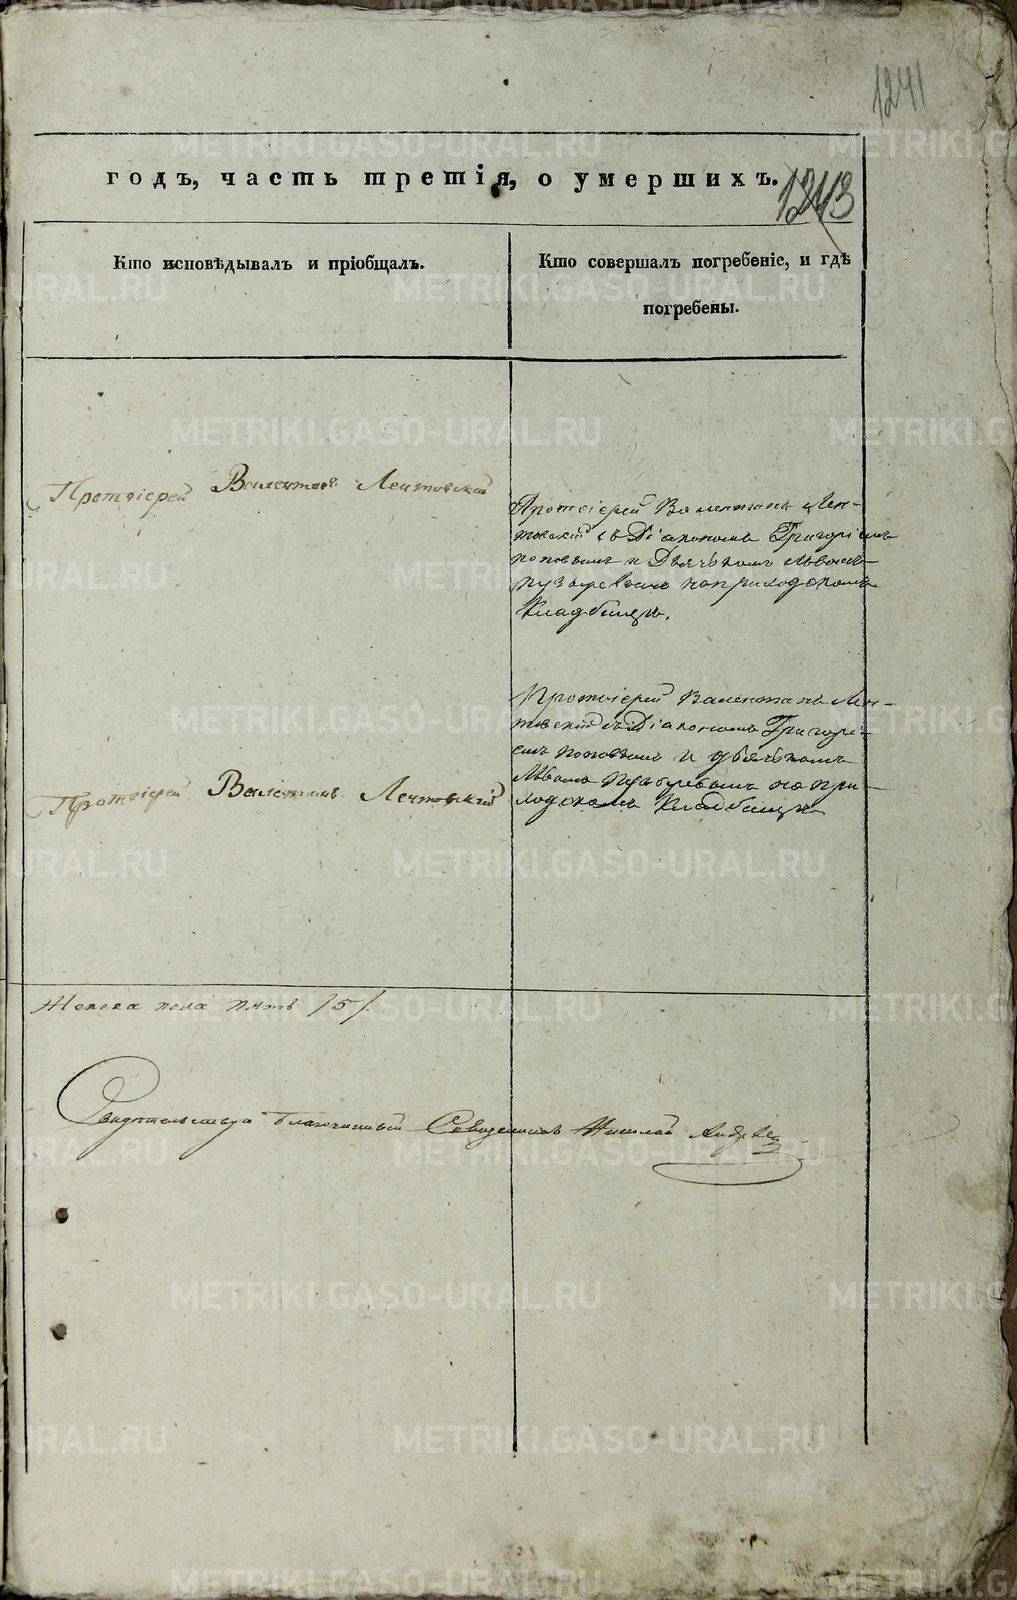 1241
годъ, часть третія, о умершихъ.
1243
Кто исповѣдывалъ и пріобщалъ.
Кто совершалъ погребеніе, и гдѣ
погребены.
Протоіерей Валентинъ Лентовскій
Протоіерей Валентинъ Лен-
товскій съ Діакономъ Григоріемъ
Поповымъ и Дьячкомъ Львомъ
на приходскомъ
Кладбищѣ.
Протоіерей Валентинъ Лен-
товскій съ Діакономъ Григорі-
емъ Поповымъ и дьячкомъ
Львомъ на при-
ходскомъ Кладбищѣ
Протоіерей Валентинъ Лентовскій
Женска пола пять /5/.
Благочинный Священникъ Николай Андреев
METRIKI.GASO-URAL.RU